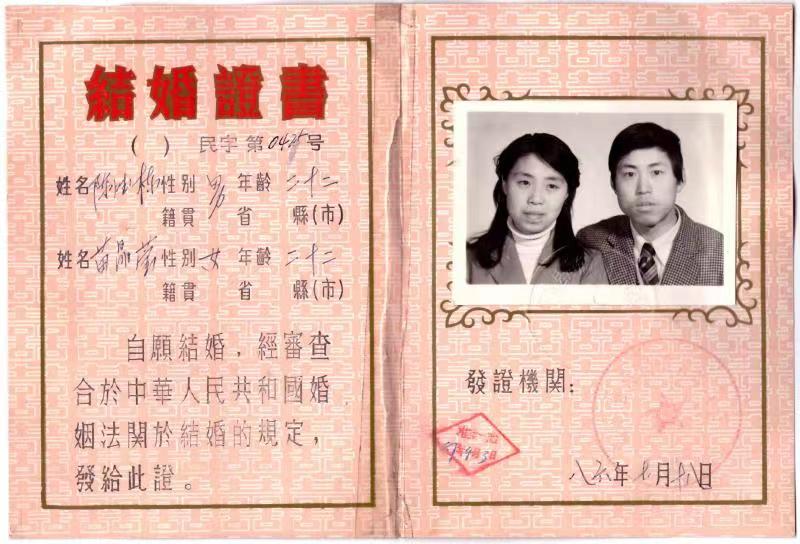 結婚證書
( ) 民字第 号
姓名 性别 男 年齡 二十二
籍貫 省 縣(市)
姓名 苗 性别 女 年齡 二十二
籍貫 省 縣(市)
自願結婚，經審查
合於中華人民共和國婚
姻法關於結婚的規定，
發給此證。
發證機関：
八六年七月十八日